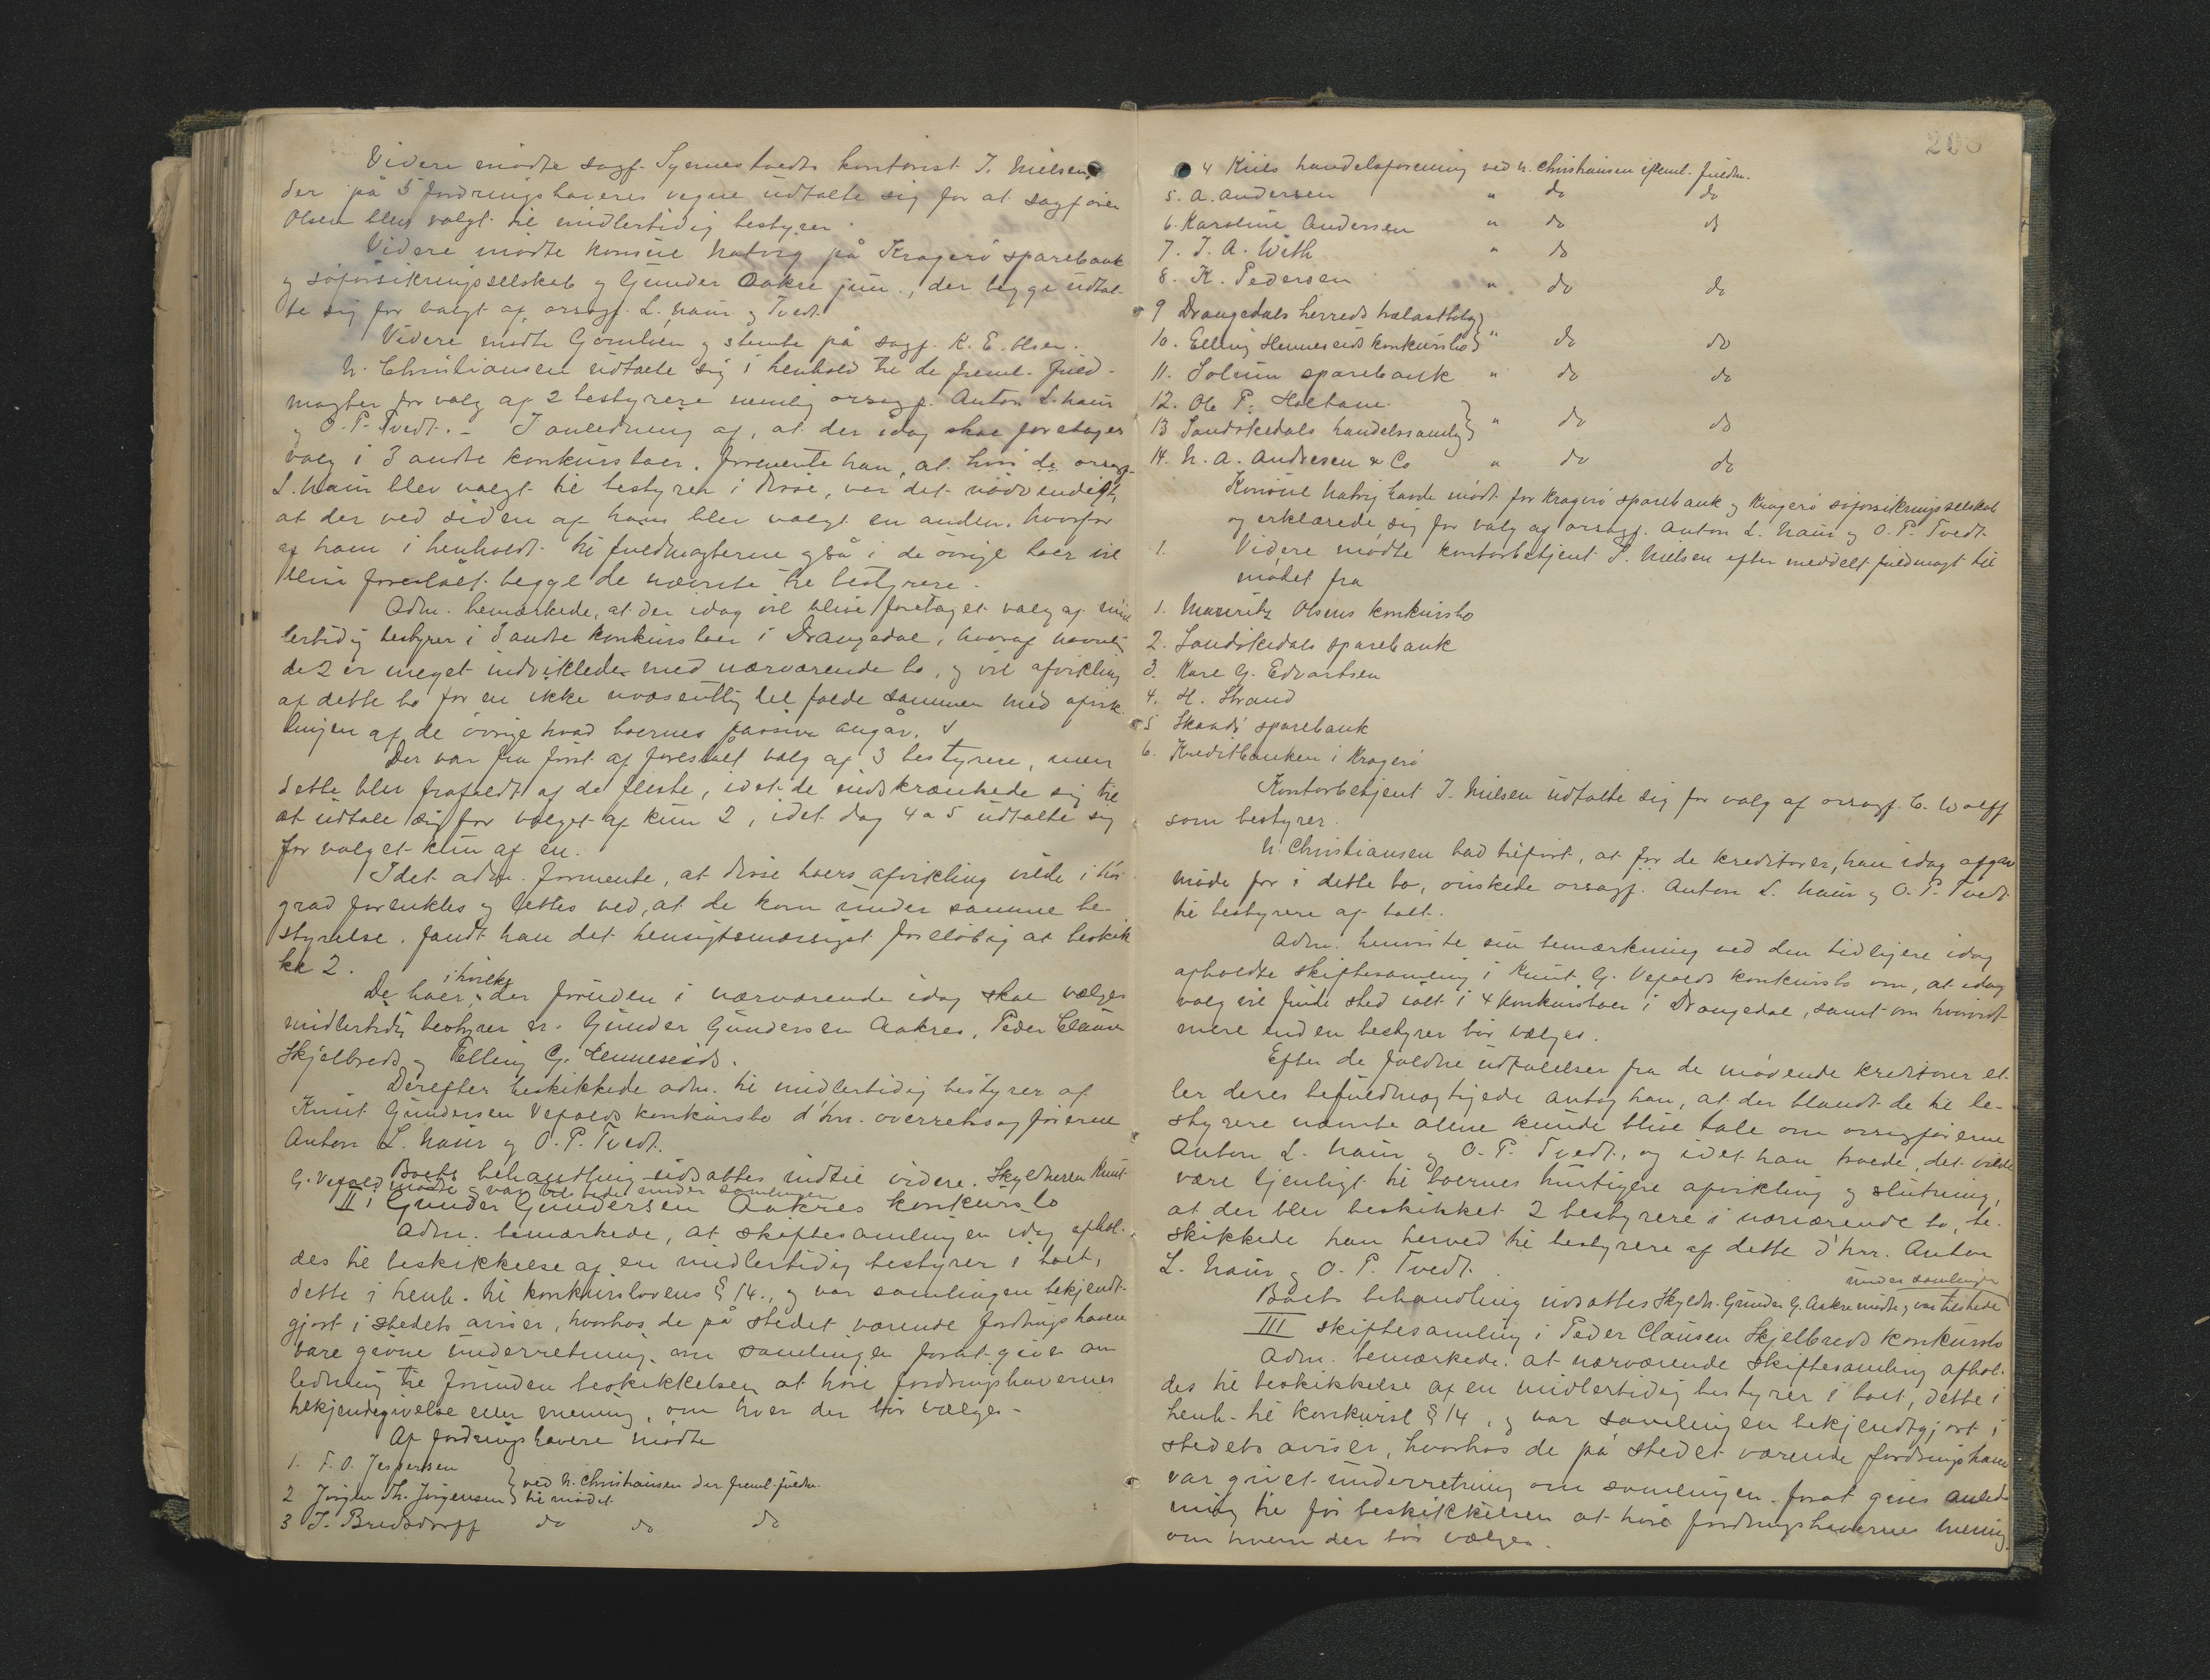 Videre mødte sagf. Synnestvedts kontorist I. Nielsen,
der på 5 fordringshaveres vegne udtalte sig for at sagfører
Olsen blev valgt til midlertidig bestyrer.
Videre mødte konsul Natvig på Kragerø sparebank
og søforsikringsselskab og Gunder Aakre jun., der begge udtal-
te sig for valgt af orsagf. L. Naur og Tvedt.
Videre mødte og stemte på sagf. K. E. Olsen.
N. Christiansen udtalte sig i henhold til de freml. fuld-
magter for valg af 2 bestyrere nemlig orsagf. Anton L. Naur
og O. P. Tvedt. - I anledning af, at der idag skal foretages
valg i 3 andre konkursboer, formente han, at hvis de orsagf.
L. Naur blev valgt til bestyrer i disse, var det nødvendigt,
at der ved siden af ham blev valgt en anden, hvorfor
af ham i henhold til fuldmagterne også i de øvrige boer vil
blive foreslået begge de nævnte til bestyrere.
Adm. bemærkede, at der idag vil blive foretaget valg af mid-
lertidig bestyrer i 3 andre konkursboer i Drangedal, hvoraf navnlig
de 2 er meget indviklede med nærværende bo, og vil afvikling
af dette bo for en ikke uvæsentlig del falde sammen med afvik-
lingen af de øvrige hvad boernes passiva angår.
Der var fra først af foreslået valg af 3 bestyrere, men
dette blev frafaldt af de fleste, idet de indskrænkede sig til
at udtale sig for valget af kun 2, idet dog 4 a 5 udtalte sig
for valget kun af en.
Idet adm. formente, at disse boers afvikling vilde i høi
grad forenkles og lettes ved, at de kom under samme be-
styrelse, fandt han det hensigtsmæssigst foreløbig at beskik-
ke 2.
i hvilke
De boer, der foruden i nærværende idag skal vælges
midlertidig bestyrer er: Gunder Gundersen Aakres, Peder Clausen
Skjelbreds og Elling G. Henneseids.
Derefter beskikkede adm. til midlertidig bestyrer af
Knut Gundersen Vefalds konkursbo d'hrr. overretssagførerne
Anton L. Naur og O. P. Tvedt.
Boets behandling udsattes indtil videre. Skyldneren Knut
G. Vefald mødte og var til stede under samlingen
II i Gunder Gundersen Aakres konkursbo
Adm. bemærkede, at skiftesamlingen idag afhol-
des til beskikkelse af en midlertidig bestyrer i boet,
dette i henh. til konkurslovens § 14., og var samlingen bekjendt-
gjort i stedets aviser, hvorhos de på stedet værende fordringshavere
vare givne underretning om samlingen forat give an-
ledning til forinden beskikkelsen at høre fordringshavernes
tilkjendegivelse eller mening, om hver der bør vælges -
Af fordringshavere mødte
1. F. O. Jespersen
2 Jørgen Th. Jørgensen } ved N. Christiansen der freml. fuldm. til mødet
3 I. Bredsdorff do do do
208
4 Kiils handelsforening ved N. Christiansen ifl. freml. fuldm.
5. A. Andersen " do do
6. Karoline Andersen " do do
7. I. A. With " do
8. K. Pedersen " do do
9 Drangedals herreds trælastbolag }
10. Elling Henneseids konkursbo } " do do
11. Solum sparebank " do do
12. Ole P. Holtane }
13 Sandøkedals handelssamlag } " do do
14. N. A. Andresen & Co " do do
Konsul Natvig havde mødt for Kragerø sparebank og Kragerø søforsikringsselskab
og erklærede sig for valg af orsagf. Anton L. Naur og O. P. Tvedt.
1. Videre mødte kontorbetjent I. Nielsen efter meddelt fuldmagt til
mødet fra
1. Mauritz Olsens konkursbo
2. Sandøkedals sparebank
3. Karl G. Edvartsen
4. H. Strand
5 Skaadø sparebank
6. Kreditbanken i Kragerø
Kontorbetjent I. Nielsen udtalte sig for valg af orsagf. C. Wolff
som bestyrer.
N. Christiansen bad tilført, at for de kreditorer, han idag afgav
møde for i dette bo, ønskede orsagf. Anton L. Naur og O. P. Tvedt
til bestyrere af boet.
Adm. henviste sin bemærkning ved den tidligere idag
afholdte skiftesamling i Knut G. Vefalds konkursbo om, at idag
valg vil finde sted ialt i 4 konkursboer i Drangedal, samt om hvorvidt
mere end en bestyrer bør vælges.
Efter de faldne udtalelser fra de mødende kreditorer el-
ler deres befuldmægtigede antog han, at der blandt de til be-
styrere nævnte alene kunde blive tale om orsagførerne
Anton L. Naur og O. P. Tvedt, og idet han troede, det vilde
være tjenligt til boernes hurtigere afvikling og slutning,
at der blev beskikket 2 bestyrere i nærværende bo, be-
skikkede han herved til bestyrere af dette d'hrr. Anton
L. Naur og O. P. Tvedt.
under samlingen
Boets behandling udsattes Skyldn. Gunder G. Aakre mødte og var tilstede
III skiftesamling i Peder Clausen Skjelbreds konkursbo
Adm. bemærkede, at nærværende skiftesamling afhol-
des til beskikkelse af en midlertidig bestyrer i boet, dette i
henh. til konkursl § 14, og var samlingen bekjendtgjort i
stedets aviser, hvorhos de på stedet værende fordringshavere
var givet underretning om samlingen forat gives anled-
ning til før beskikkelsen at høre fordringshavernes mening,
om hvem der bør vælges.